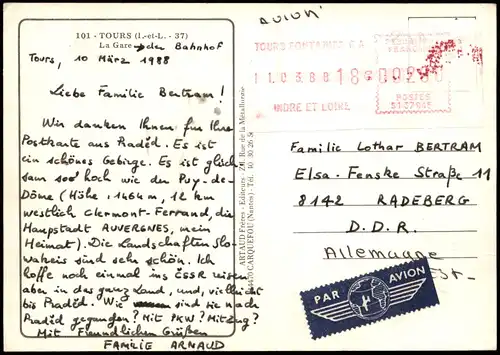 101 - TOURS (I.-et-L. - 37)
La Gare → der Bahnhof
Tours, 10 März 1988
Liebe Familie Bertram!
Wir danken Ihnen für Ihre
Postkarte aus Praděd. Es ist
ein schönes Gebirge. Es ist
so hoch wie der Puy-de-
Dôme (Höhe, 1464 m, 12 km
westlich Clermont-Ferrand, die
Haupstadt AUVERGNES, mein
Heimat). Die Landschaften Slo-
wakeis sind sehr schön. Ich
hoffe noch einmal ins ČSSR reisen
aber in das ganz Land, und, vielleicht
bis Praděd. Wie sind sie nach
Praděd gegangen? Mit PKW? Mit Zug?
Mit Freundlichen Grüßen
FAMILIE ARNAUD
ARTAUD Frères - Editeurs - Rue de la Métallurgie
44470 CARQUEFOU (Nantes) - Tél. 40.30.26.5
AVION
TOURS FONTAINES P.A
INDRE ET LOIRE
FRANÇAISE
POSTES
Familie Lothar BERTRAM
Elsa-Fenske Straße 11
8142 RADEBERG
D.D.R.
Allemagne
Est.
PAR AVION